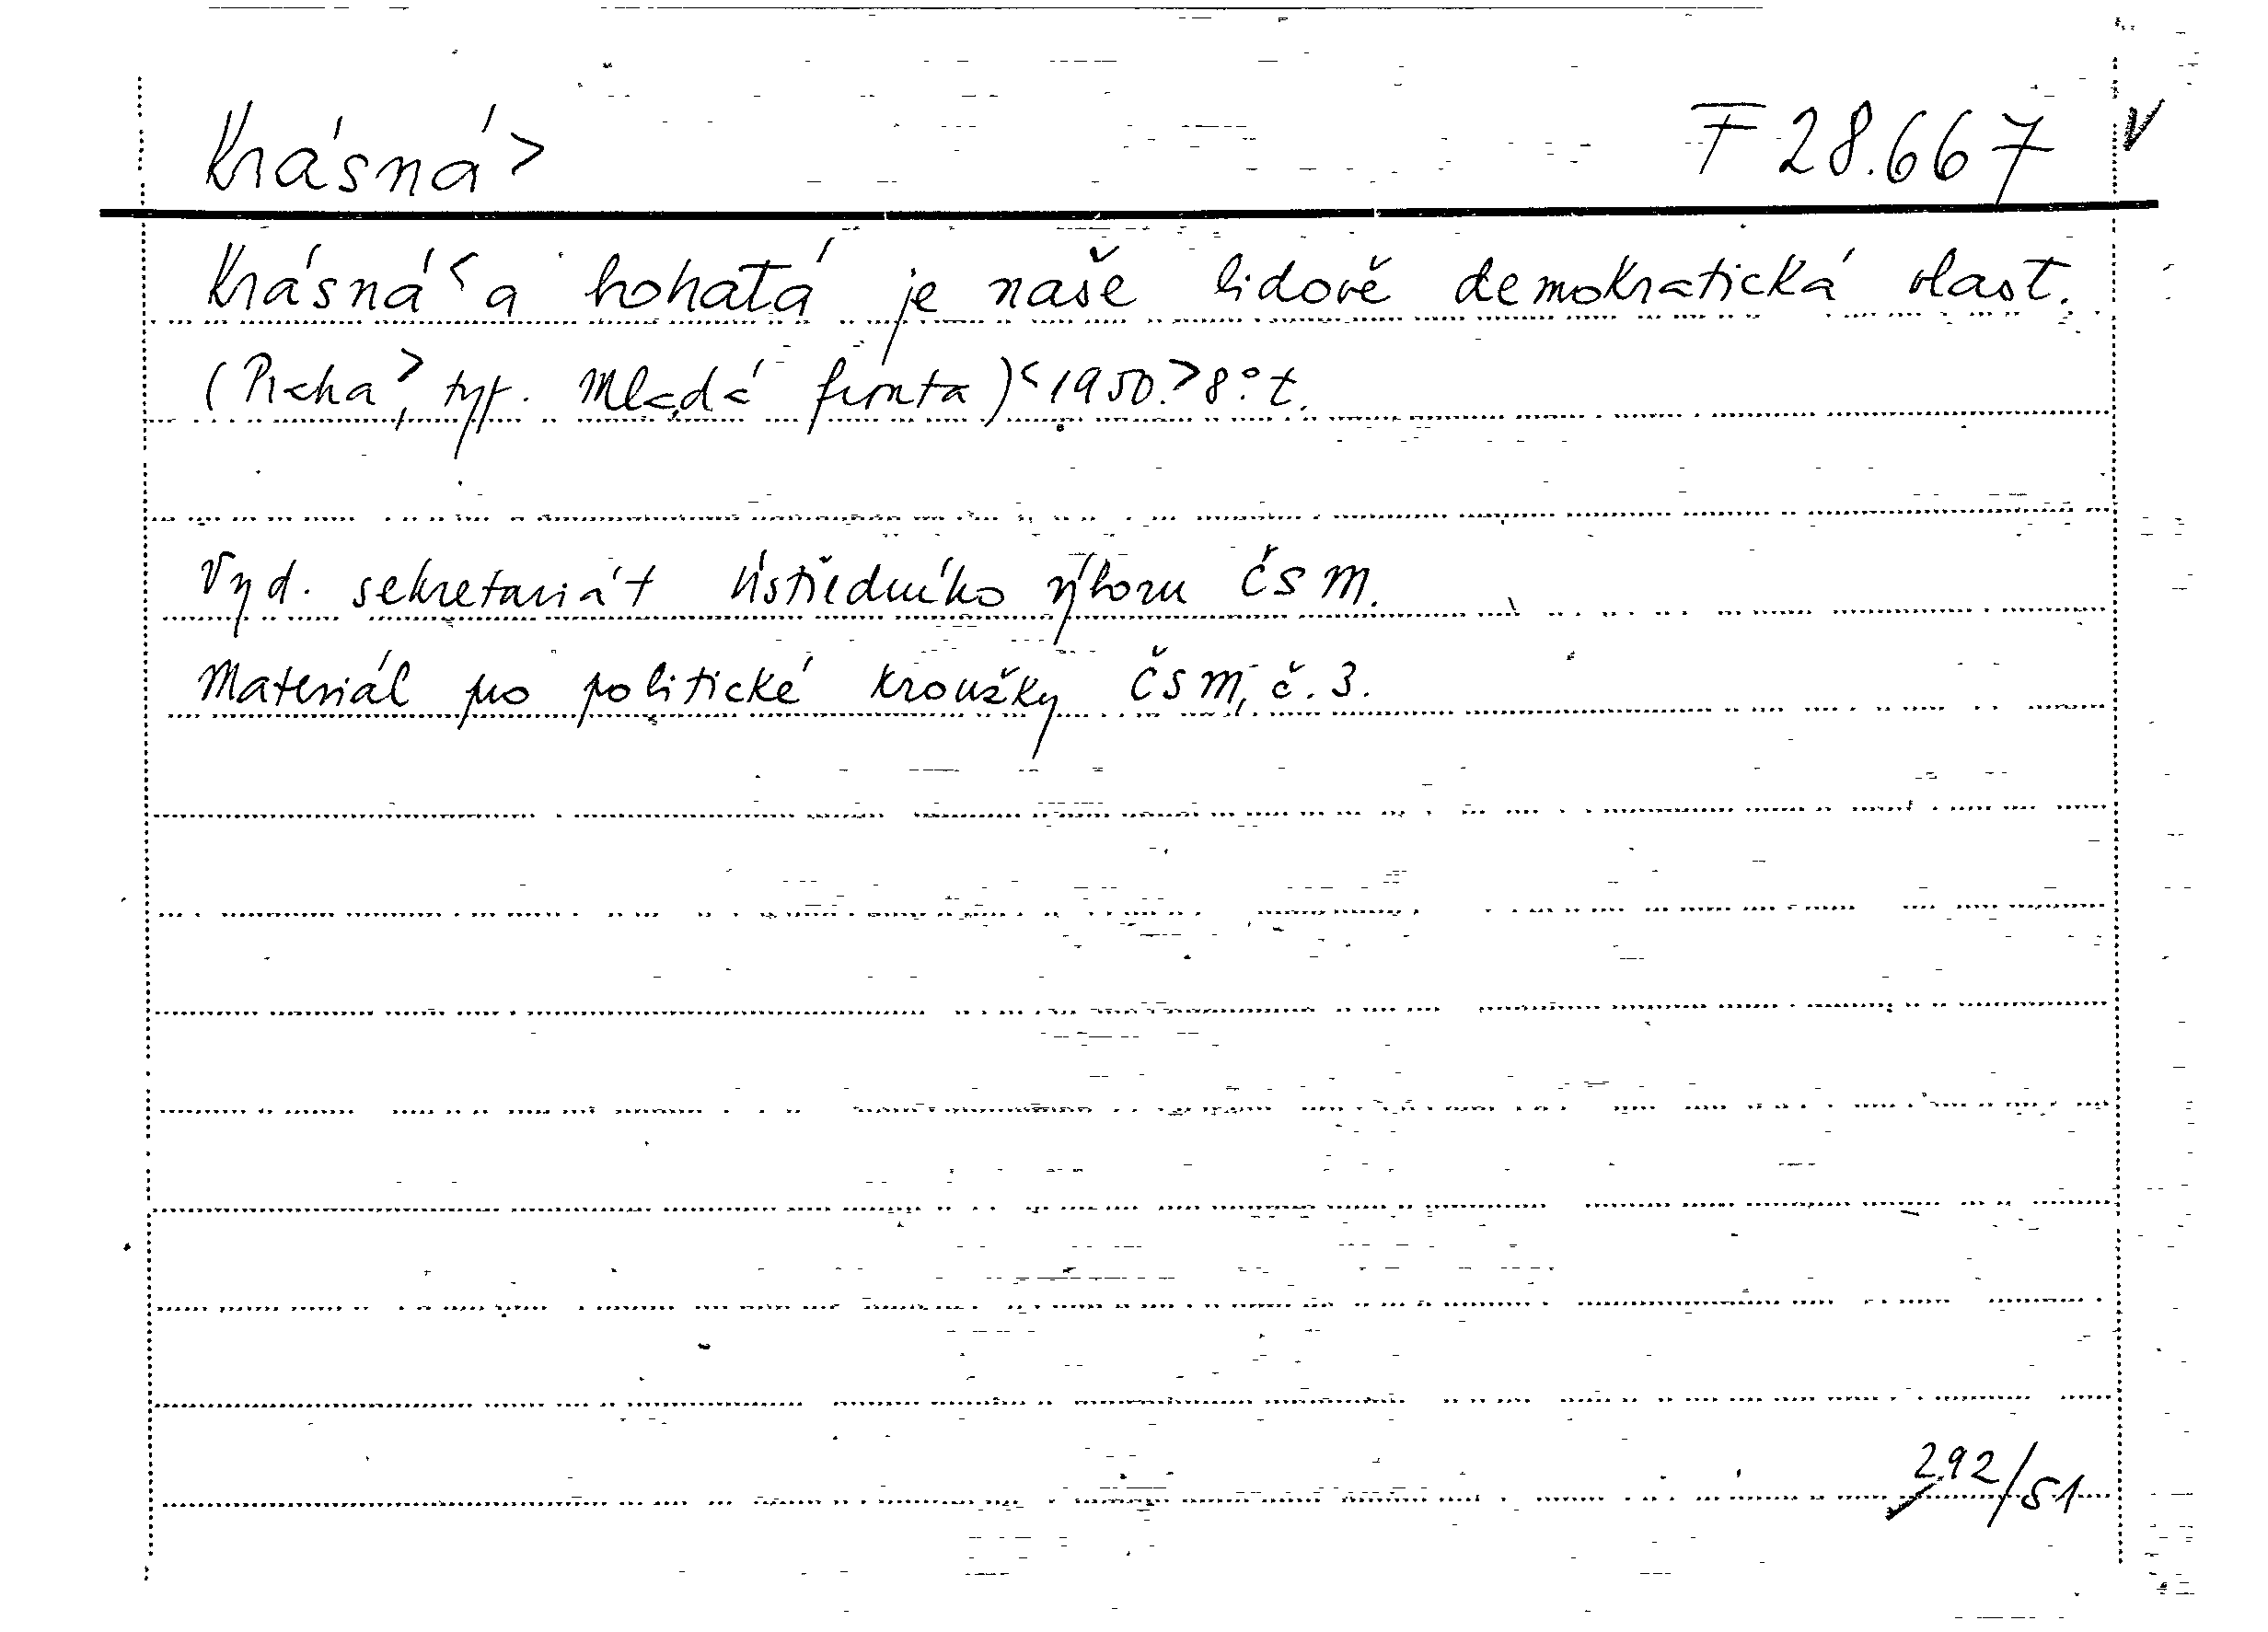 Krásná> F 28.667 V
Krásná< a bohatá je naše lidově demokratická vlast.
(Praha>, typ. Mladá fronta)<1950.>8°. t.
Vyd. sekretariát Ústředního výboru ČSM.
Materiál pro politické kroužky ČSM, č. 3.
292/51